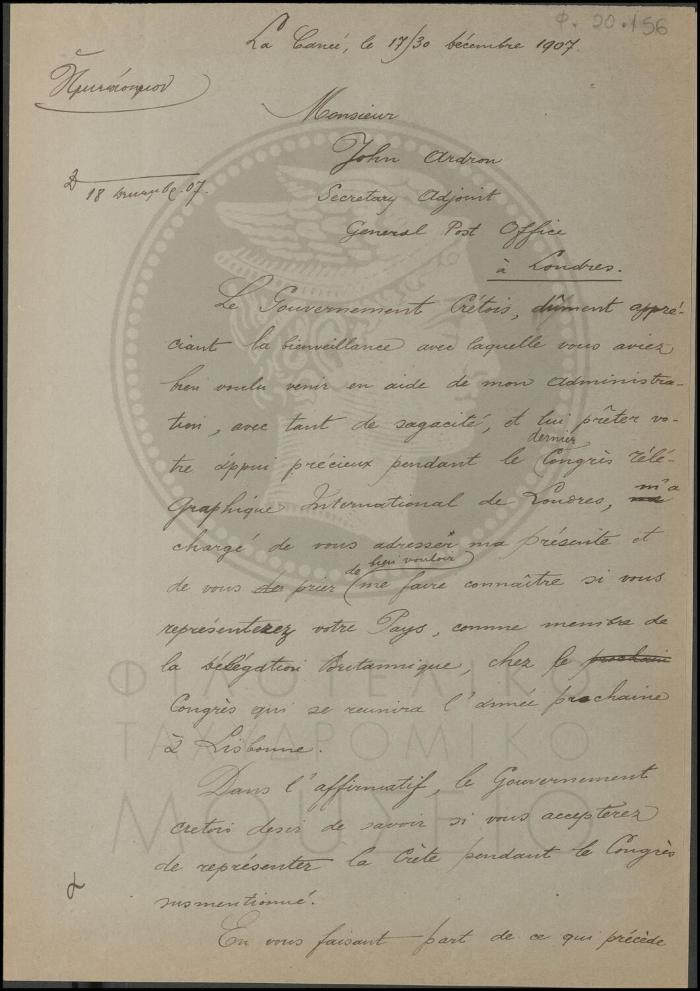 Φ. 20.156
La Canée, le 17/30 décembre 1907.
Ἡμιεπίσημον
Monsieur
John Ardron
18 Δεκεμβρ. 07.
Secretary Adjoint
General Post Office
à Londres.
Le Gouvernement Crétois, dûment appré-
ciant la bienveillance avec laquelle vous aviez
bien voulu venir en aide de mon administra-
tion, avec tant de sagacité, et lui prêter vo-
dernier
tre appui précieux pendant le Congrès Télé-
graphique International de Londres, m'a
chargé de vous adresser ma présente et
de bien vouloir
de vous prier me faire connaître si vous
représenterez votre Pays, comme membre de
la délégation Britannique, chez le prochain
Congrès qui se reunira l'année prochaine
à Lisbonne.
Dans l'affirmatif, le Gouvernement
cretois desir de savoir si vous accepterez
de représenter la Crète pendant le Congrès
susmentionné.
En vous faisant part de ce qui précède
ΦΙΛΟΤΕΛΙΚΟ
ΤΑΧΥΔΡΟΜΙΚΟ
ΜΟΥΣΕΙΟ